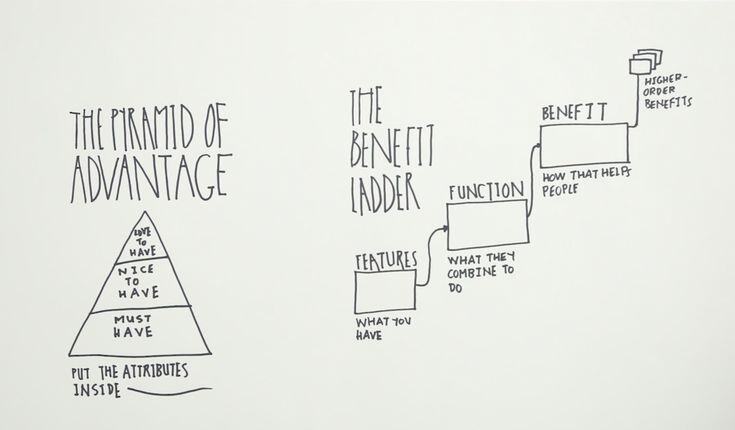 THE PYRAMID OF
ADVANTAGE
LOVE
TO
HAVE
NICE
TO
HAVE
MUST
HAVE
PUT THE ATTRIBUTES
INSIDE
THE
BENEFIT
LADDER
FEATURES
WHAT YOU
HAVE
FUNCTION
WHAT THEY
COMBINE TO
DO
BENEFIT
HOW THAT HELPS
PEOPLE
HIGHER-
ORDER
BENEFITS